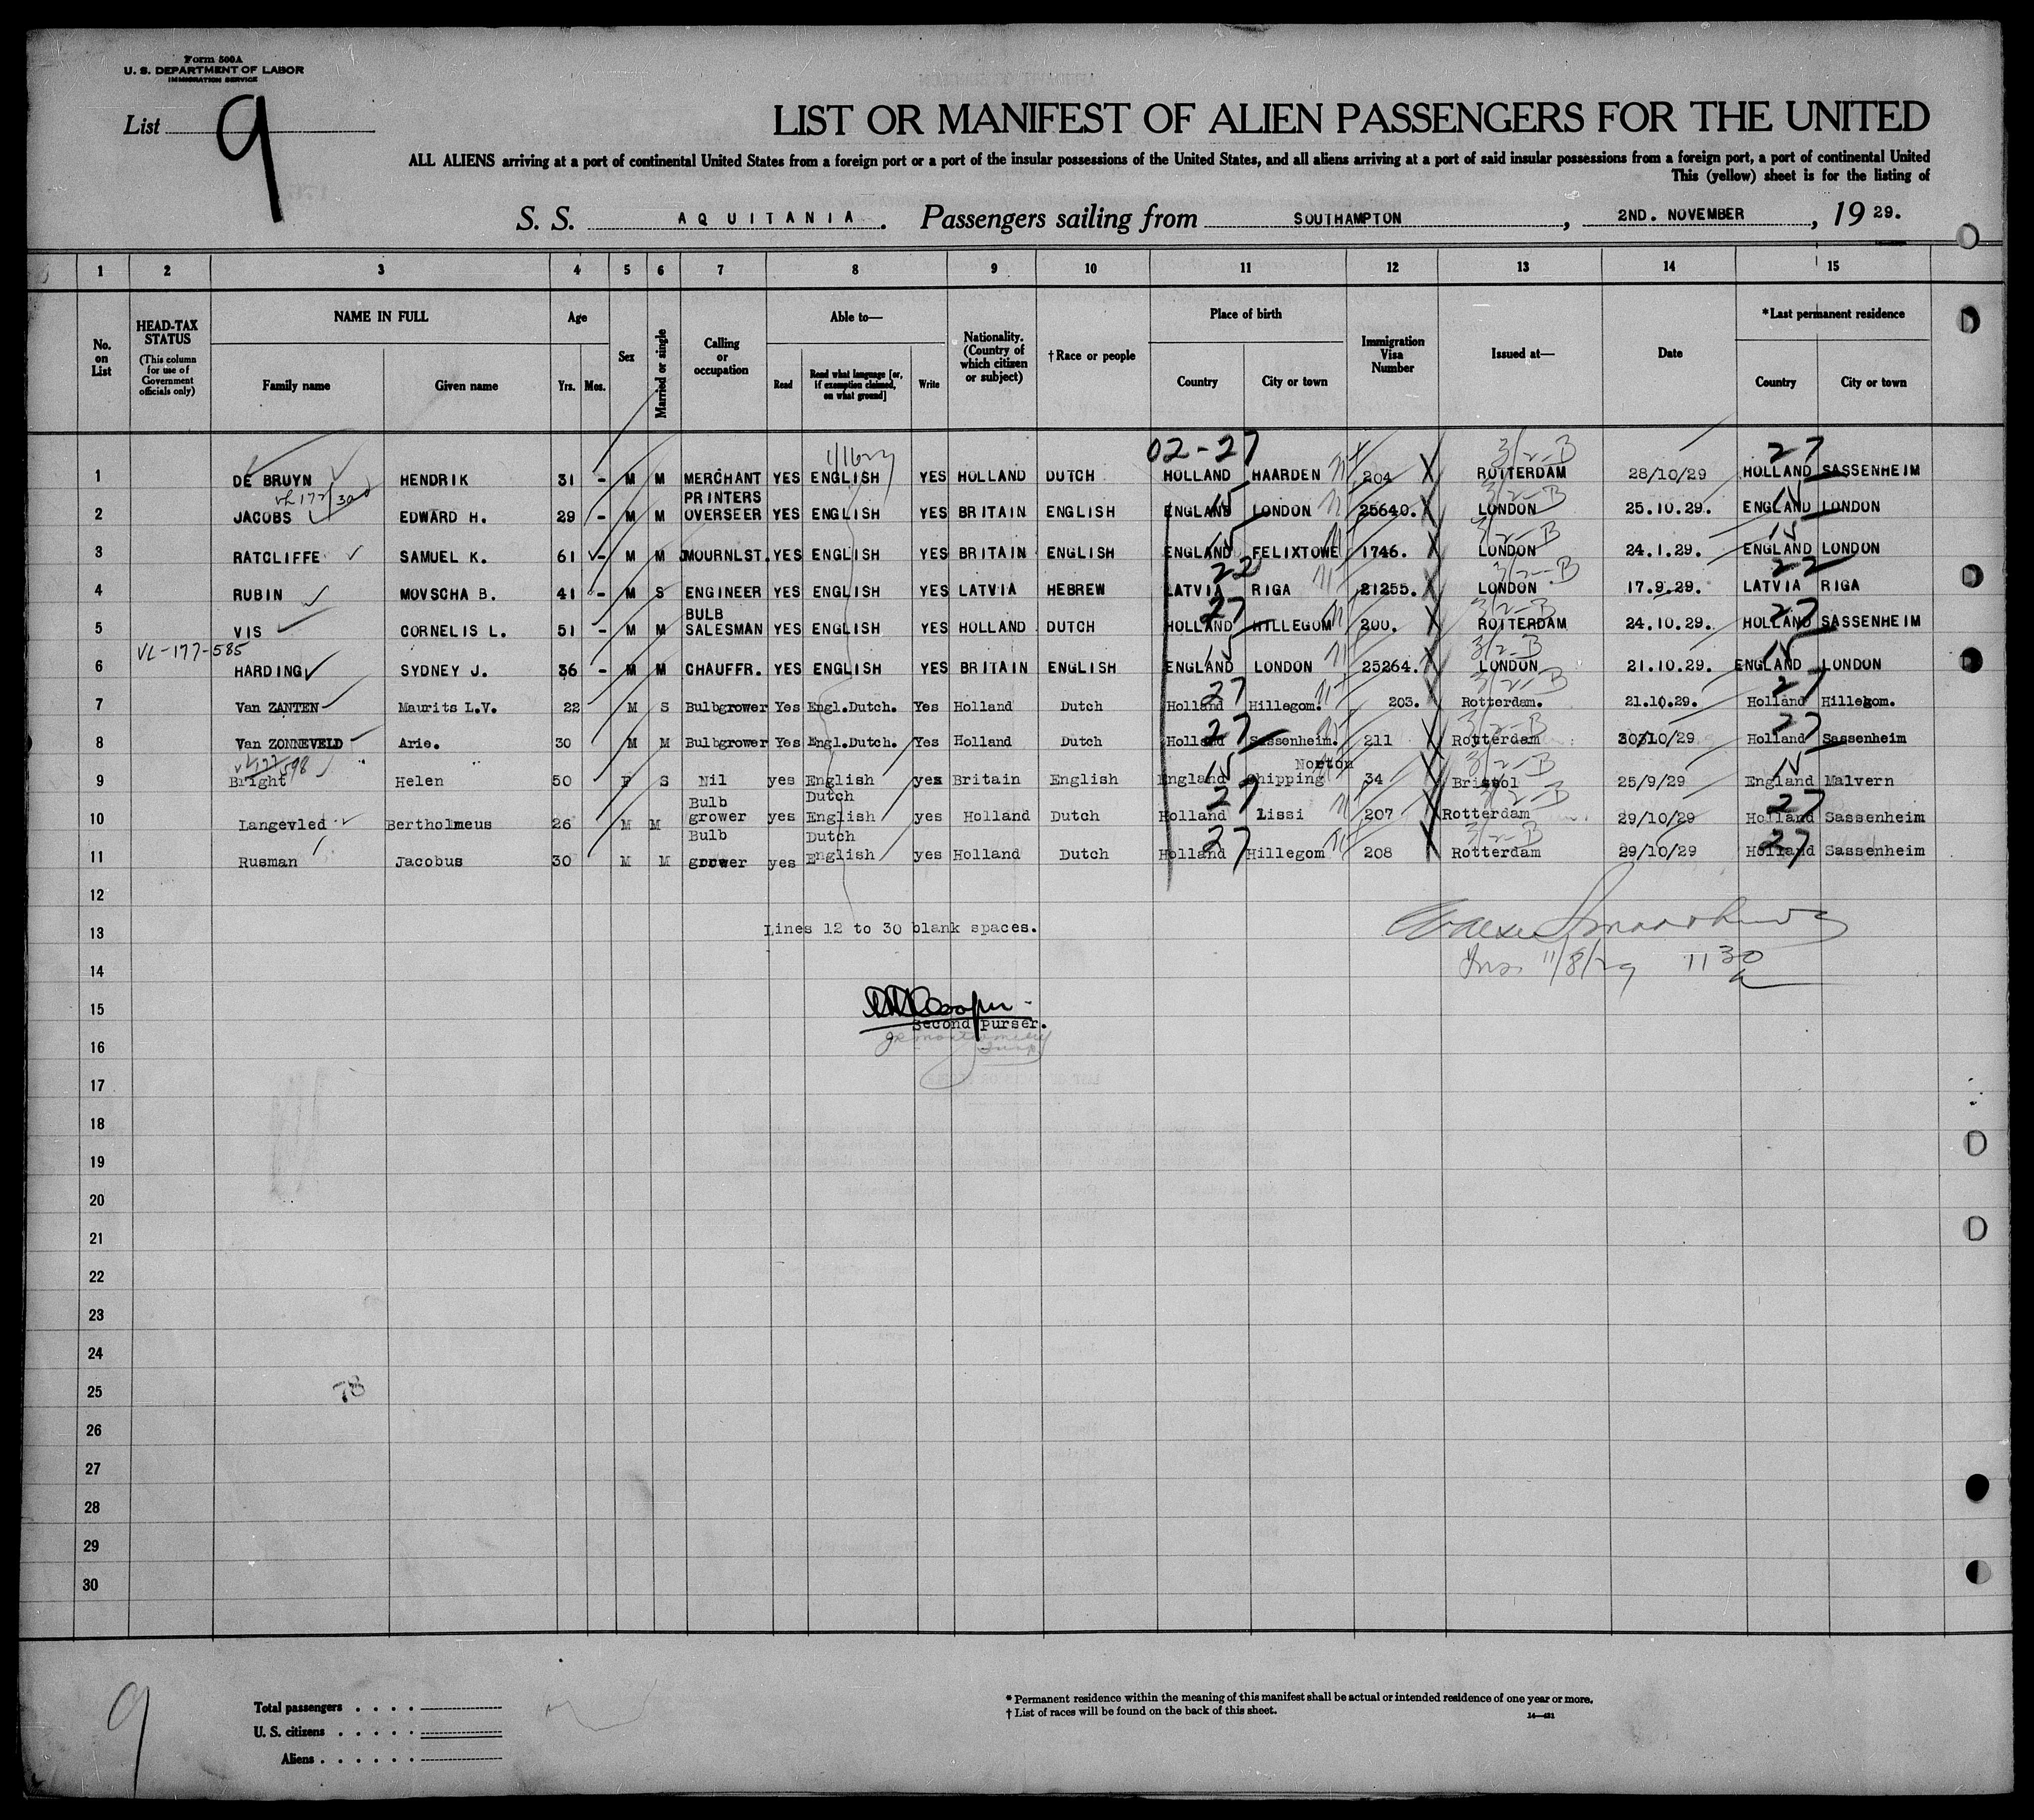 Form 500A
U. S. DEPARTMENT OF LABOR
IMMIGRATION SERVICE
List 9
LIST OR MANIFEST OF ALIEN PASSENGERS FOR THE UNITED
ALL ALIENS arriving at a port of continental United States from a foreign port or a port of the insular possessions of the United States, and all aliens arriving at a port of said insular possessions from a foreign port, a port of continental United
This (yellow) sheet is for the listing of
S. S. AQUITANIA. Passengers sailing from SOUTHAMPTON, 2ND. NOVEMBER, 19 29.
1 2 3 4 5 6 7 8 9 10 11 12 13 14 15
No. on List
HEAD-TAX STATUS (This column for use of Government officials only)
NAME IN FULL Family name Given name
Age Yrs. Mos.
Sex
Married or single
Calling or occupation
Able to— Read Read what language [or, if exemption claimed, on what ground] Write
Nationality. (Country of which citizen or subject)
†Race or people
Place of birth Country City or town
Immigration Visa Number
Issued at—
Date
*Last permanent residence Country City or town
02-27 3/2-B 27
1 DE BRUYN HENDRIK 31 - M M MERCHANT YES ENGLISH YES HOLLAND DUTCH HOLLAND HAARDEN 204 X ROTTERDAM 28/10/29 HOLLAND SASSENHEIM
15 3/2-B 15
2 JACOBS EDWARD H. 29 - M M PRINTERS OVERSEER YES ENGLISH YES BRITAIN ENGLISH ENGLAND LONDON 25640. X LONDON 25.10.29. ENGLAND LONDON
15 3/2-B 15
3 RATCLIFFE SAMUEL K. 61 - M M JOURNLST. YES ENGLISH YES BRITAIN ENGLISH ENGLAND FELIXTOWE 1746. X LONDON 24.1.29. ENGLAND LONDON
22 3/2-B 22
4 RUBIN MOVSCHA B. 41 - M S ENGINEER YES ENGLISH YES LATVIA HEBREW LATVIA RIGA 21255. X LONDON 17.9.29. LATVIA RIGA
27 3/2-B 27
5 VIS CORNELIS L. 51 - M M BULB SALESMAN YES ENGLISH YES HOLLAND DUTCH HOLLAND HILLEGOM 200. X ROTTERDAM 24.10.29. HOLLAND SASSENHEIM
VL-177-585 15 3/2-B 15
6 HARDING SYDNEY J. 36 - M M CHAUFFR. YES ENGLISH YES BRITAIN ENGLISH ENGLAND LONDON 25264. X LONDON 21.10.29. ENGLAND LONDON
27 3/2-B 27
7 Van ZANTEN Maurits L.V. 22 M S Bulbgrower Yes Engl.Dutch. Yes Holland Dutch Holland Hillegom. 203. X Rotterdam. 21.10.29. Holland Hillegom.
27 3/2-B 27
8 Van ZONNEVELD Arie. 30 M M Bulbgrower Yes Engl.Dutch. Yes Holland Dutch Holland Sassenheim. 211 X Rotterdam 30/10/29 Holland Sassenheim
15 3/2-B 15
9 Bright Helen 50 F S Nil yes English yes Britain English England Norton Shipping 34 X Bristol 25/9/29 England Malvern
27 3/2-B 27
10 Langevled Bertholmeus 26 M M Bulb grower yes Dutch English yes Holland Dutch Holland Lissi 207 X Rotterdam 29/10/29 Holland Sassenheim
27 3/2-B 27
11 Rusman Jacobus 30 M M Bulb grower yes Dutch English yes Holland Dutch Holland Hillegom 208 X Rotterdam 29/10/29 Holland Sassenheim
12
13 Lines 12 to 30 blank spaces.
14 11/8/29 11 30 a
15
Second purser.
16
17
18
19
20
21
22
23
24
25 78
26
27
28
29
30
9
Total passengers
U. S. citizens
Aliens
* Permanent residence within the meaning of this manifest shall be actual or intended residence of one year or more.
† List of races will be found on the back of this sheet.
14—431